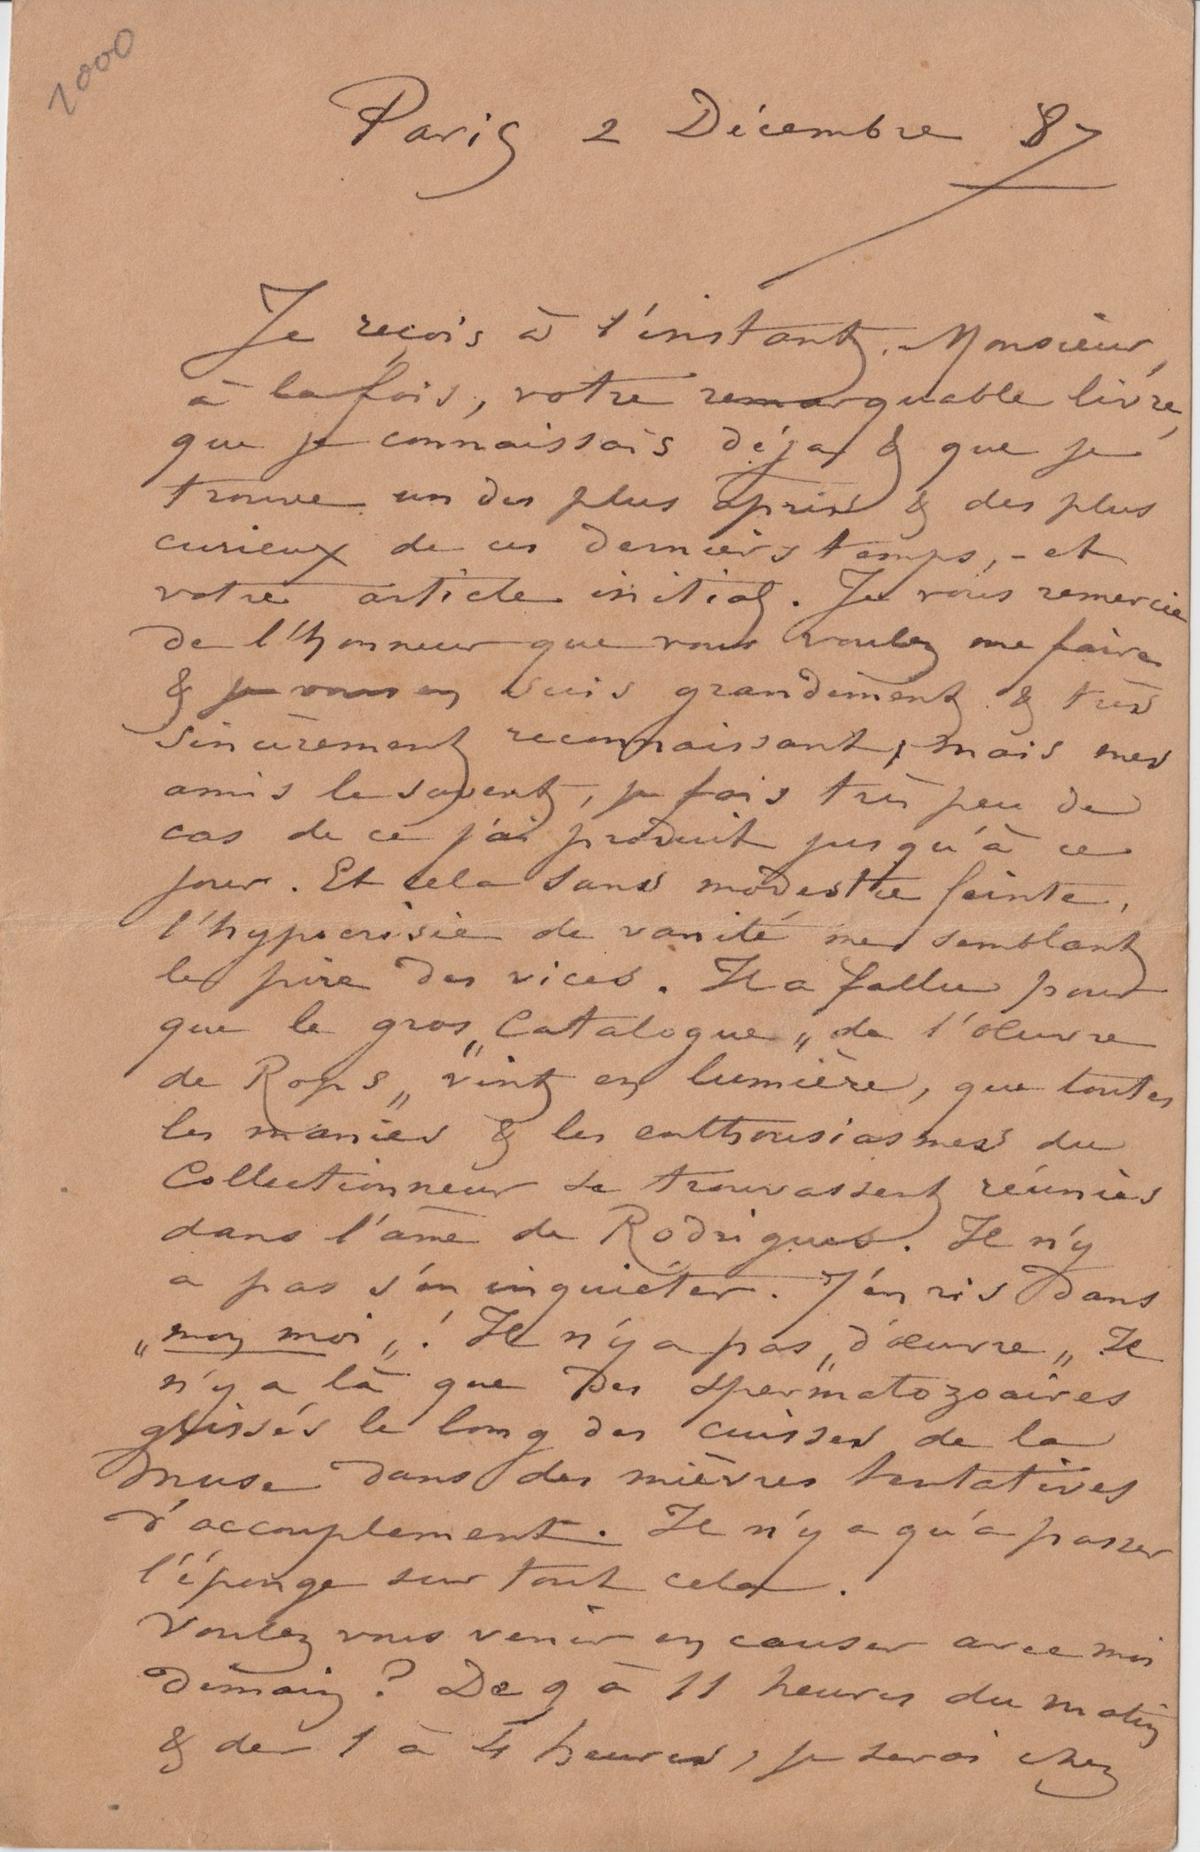 2000
Paris 2 Décembre 87
Je reçois à l'instant, Monsieur,
à la fois, votre remarquable livre,
que je connaissais déja & que je
trouve un des plus âpres & des plus
curieux de ces derniers temps, - et
votre article initial. Je vous remercie
de l'honneur que vous voulez me faire
& je vous en suis grandement & très
sincèrement reconnaissant, mais mes
amis le savent, je fais très peu de
cas de ce j'ai produit jusqu'à ce
jour. Et cela sans modestie feinte,
l'hypocrisie de vanité me semblant
le pire des vices. Il a fallu pour
que le gros „Catalogue„ de l'œuvre
de Rops„ vint en lumière, que toutes
les manies & les enthousiasmes du
Collectionneur se trouvassent réunies
dans l'âme de Rodrigues. Il n'y
a pas s'en inquiéter. J'en ris dans
„mon moi„! Il n'y a pas „d'œuvre„ Il
n'y a là que des spermatozoaires
glissés le long des cuisses de la
Muse dans des mièvres tentatives
d'accouplement. Il n'y a qu'a passer
l'éponge sur tout cela.
Voulez vous venir en causer avec moi
demain? De 9 à 11 heures du matin
& de 1 à 4 heures, je serai chez